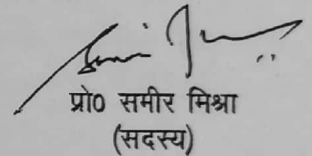 प्रो0 समीर मिश्रा
(सदस्य)